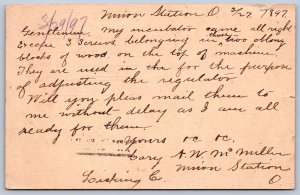 3/29/97
Union Station O. 3/27. 1897.
Gentlemen my incubator came all right
except 3 screws belonging in two oblong
blocks of wood on the top of machine
They are used in the for the purpose
of adjusting the regulator
Will you pleas mail them to
me without delay as I am all
ready for them
Yours &c &c.
Cary A. W. McMillen
Union Station
Licking C. O